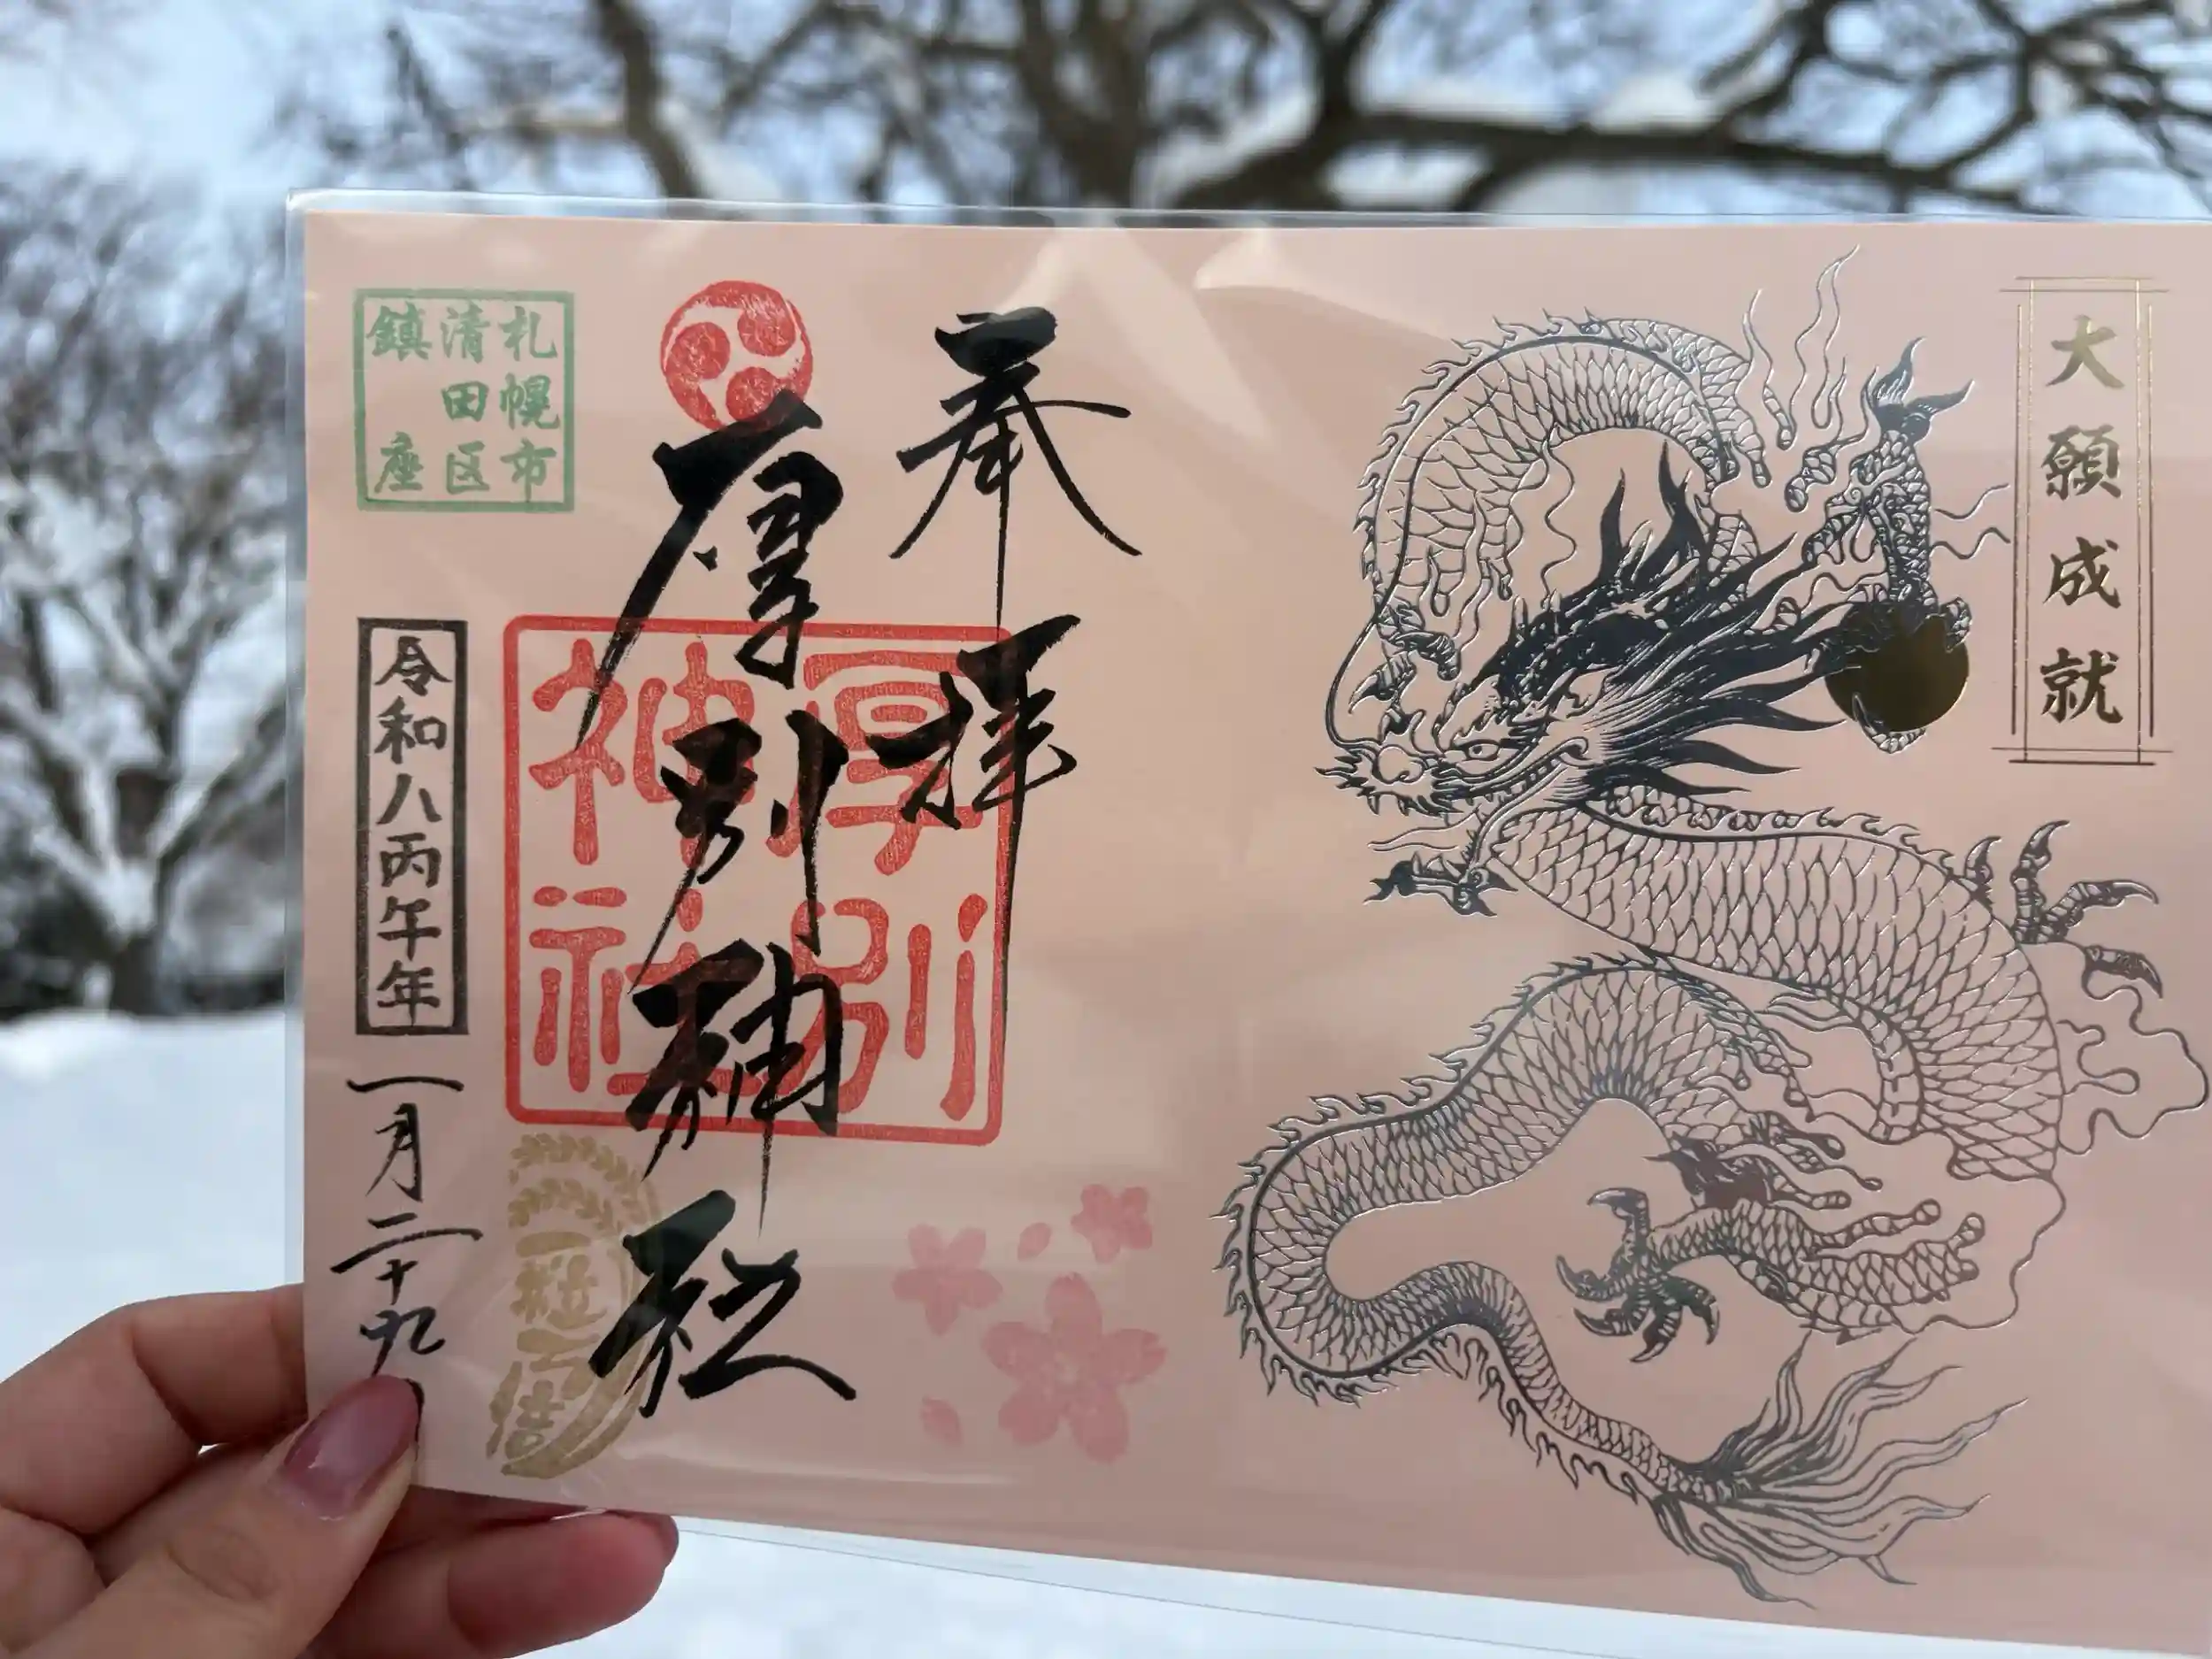 大願成就
奉拝
厚別神社
厚別
神社
札幌市
清田区
鎮座
令和八丙午年
一月二十九日
一粒万倍